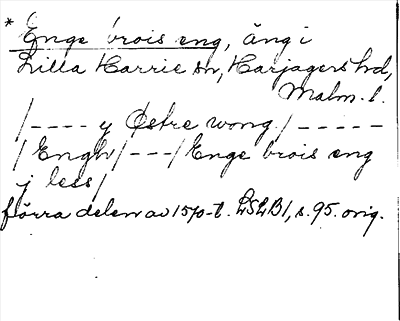 * Enge brois eng, äng i
Lilla Harrie sn, Harjagers hd,
Malm. l.
/---- y Østre wong / -----
/ Engh / --- / Enge brois eng
j less /
förra delen av 1570-t. LSLB1, s. 95. orig.